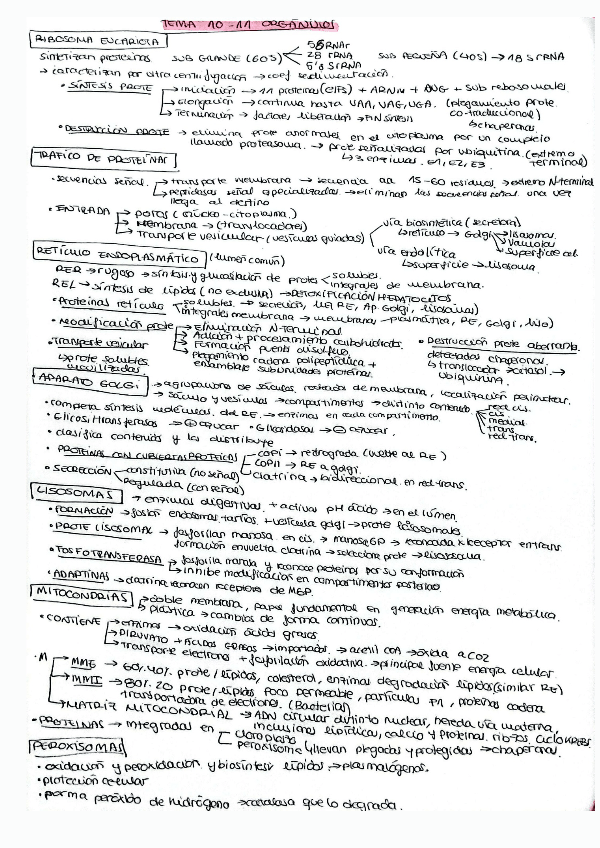 TEMA 10-11 ORGÁNULOS
RIBOSOMA EUCARIOTA
5S RNAr
sintetizan proteínas SUB GRANDE (60S) 28 rRNA SUB PEQUEÑA (40S) → 18 S rRNA
5'8 S rRNA
→ caracterizan por ultracentrifugación → coef sedimentación.
• SÍNTESIS PROTE → iniciación → 11 proteínas (eIFs) + ARNm + AUG + sub ribosomales
→ elongación → continua hasta UAA, UAG, UGA. (plegamiento prote.
→ Terminación → factores liberación → FIN síntesis co-traduccional)
↳ chaperonas.
• DESTRUCCIÓN PROTE → elimina prote anormales en el citoplasma por un complejo
llamado proteasoma. → prote señalizadas por ubiquitina. (extremo
↳ 3 enzimas. E1, E2, E3. terminal)
TRÁFICO DE PROTEÍNAS
• secuencias señal. → transporte membrana → secuencia aa 15-60 residuos → extremo N-terminal
→ peptidasas señal especializadas → eliminan las secuencias señal una vez
llega al destino
• ENTRADA → poros (núcleo-citoplasma.) vía biosintética (secretora)
→ Membrana → (translocadores) ↳ retículo → Golgi → lisosomas.
→ Transporte vesicular (vesículas guiadas) vacuolas
superficie cel.
vía endolítica
↳ superficie → lisosoma.
RETÍCULO ENDOPLASMÁTICO (lumen común)
RER → rugoso → síntesis y glucosilación de protes solubles.
integrales de membrana.
REL → síntesis de lípidos (no exclusiva) → DETOXIFICACIÓN HEPATOCITOS.
• Proteínas retículo solubles. → secreción, luz RE, Ap. Golgi, lisosomas)
integrales membrana → membrana → plasmática, RE, Golgi, liso)
• Modificación prote → Eliminación N-terminal
→ Adición + procesamiento carbohidratos. • Destrucción prote aberrante.
→ Formación puente disulfuro. detectadas chaperonas.
• transporte vesicular → Plegamiento cadena polipeptídica + → translocador → citosol →
↳ prote solubles ensamblaje subunidades proteínas. ubiquitina.
movilizadas
APARATO GOLGI → agrupaciones de sáculos, rodeada de membrana, localización perinuclear.
→ sáculo y vesículas → compartimentos → distinto contenido red cis.
• completa síntesis moléculas del RE. → enzimas en cada compartimento. cis.
medial.
• Glicosiltransferasas → ⊕ azúcar • Glicosidasas → ⊖ azúcar. trans.
red trans.
• clasifica contenidos y los distribuye
• PROTEÍNAS CON CUBIERTAS PROTEICAS COPI → retrógrada (vuelve al RE)
COPII → RE a golgi.
clatrina → bidireccional en red trans.
• SECRECIÓN constitutiva (no señal)
Regulada (con señal)
LISOSOMAS → enzimas digestivas + activas pH ácido → en el lúmen.
• FORMACIÓN → fusión endosomas tardíos + vesícula golgi → prote lisosomales.
• PROTE LISOSOMAL → fosforilan manosa en cis. → manosa 6P → reconocida x receptor en trans.
formación envuelta clatrina → selecciona prote → lisosoma.
• FOSFOTRANSFERASA → fosforila manosa y reconoce proteínas por su conformación
→ inhibe modificación en compartimentos posteriores.
• ADAPTINAS → clatrina reconocen receptores de M6P.
MITOCONDRIAS → doble membrana, papel fundamental en generación energía metabólica.
→ plástica → cambios de forma continuos.
• CONTIENE → enzimas → oxidación ácidos grasos.
→ PIRUVATO + ÁCIDOS GRASOS → importados. → acetil CoA → oxida a CO2
→ Transporte electrones + fosforilación oxidativa. → principal fuente energía celular.
• M → MME → 60%. 40% prote/lípidos, colesterol, enzimas degradación lípidos (similar RE)
→ MMI → 80%. 20 prote/lípidos, poco permeable, partículas F1, proteínas cadena
transportadora de electrones. (Bacterias)
→ MATRIZ MITOCONDRIAL → ADN circular distinto nuclear, hereda vía materna,
inclusiones lipídicas, calcio y proteínas. ribos. ciclo KREBS.
• PROTEÍNAS → integradas en cloroplasto
peroxisoma llevan plegadas y protegidas → chaperonas.
PEROXISOMAS
• oxidación y peroxidación y biosíntesis lípidos → plasmalógenos.
• protección celular
• forma peróxido de hidrógeno → catalasa que lo degrada.